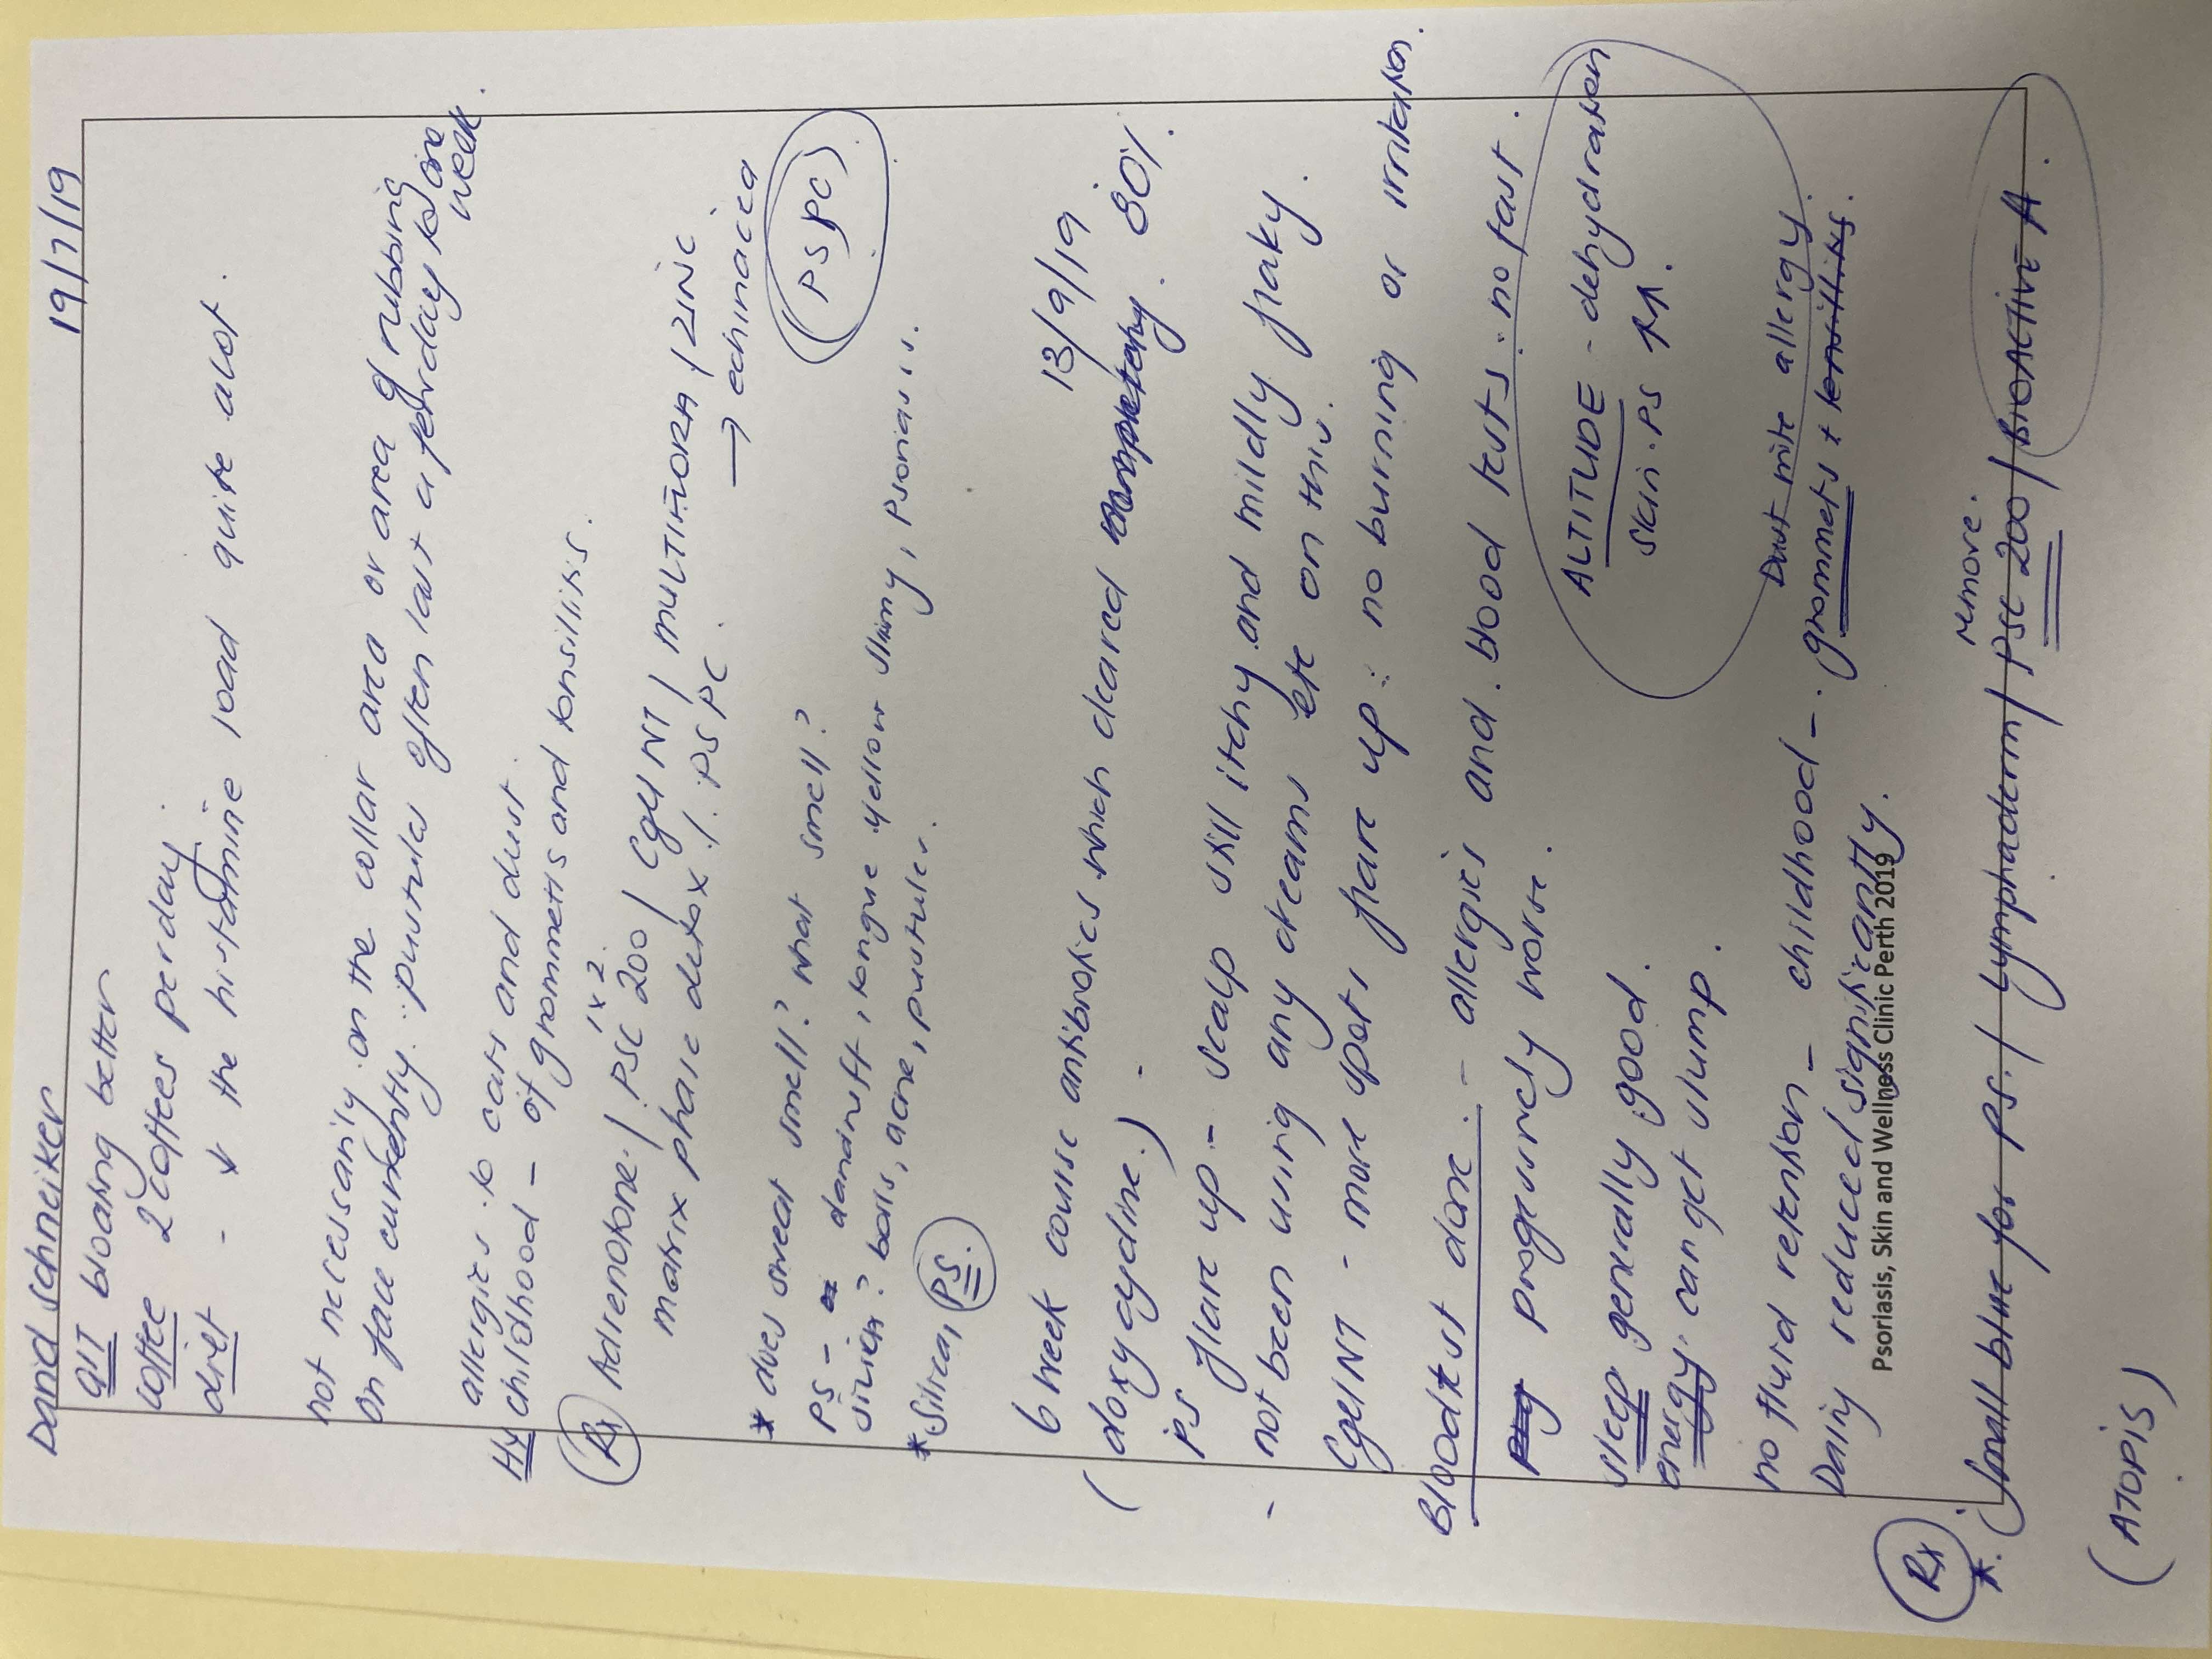 David Schneiker 19/7/19
GIT bloating better
coffee 2 coffees per day.
diet - ↓ the histamine load quite alot.
not necessarily on the collar area or area of rubbing
on face currently. pustules often last a few days to one week.
allergies to cats and dust.
Hx childhood - of grommetts and tonsillitis.
Rx Adrenotone / PSC 200 1x2 / CgelNT / MULTIFLORA / ZINC
matrix phase detox /. PSPC. → echinacea
* does sweat smell? what smell? (PSPC)
PS - dandruff, tongue yellow slimy, Psoriasis.
boils, acne, pustules.
* Silica, PS.
13/9/19
6 week course antibiotics which cleared 80%.
(doxycycline.)
PS flare up - scalp still itchy and mildly flaky.
- not been using any creams etc on this.
CgelNT - more spots flare up : no burning or irritation.
Bloodtest done. - allergies and blood tests : no fast.
progressively worse.
ALTITUDE - dehydration
skin. PS ↑↑.
sleep generally good.
energy. can get slump.
Dust mite allergy.
no fluid retension - childhood - grommets + tonsillitis.
Dairy reduced significantly.
Psoriasis, Skin and Wellness Clinic Perth 2019
Rx
remove.
* (small blue for PS. / Lymphaderm / PSC 200 / BIOACTIVE A.
(ATOPIS)